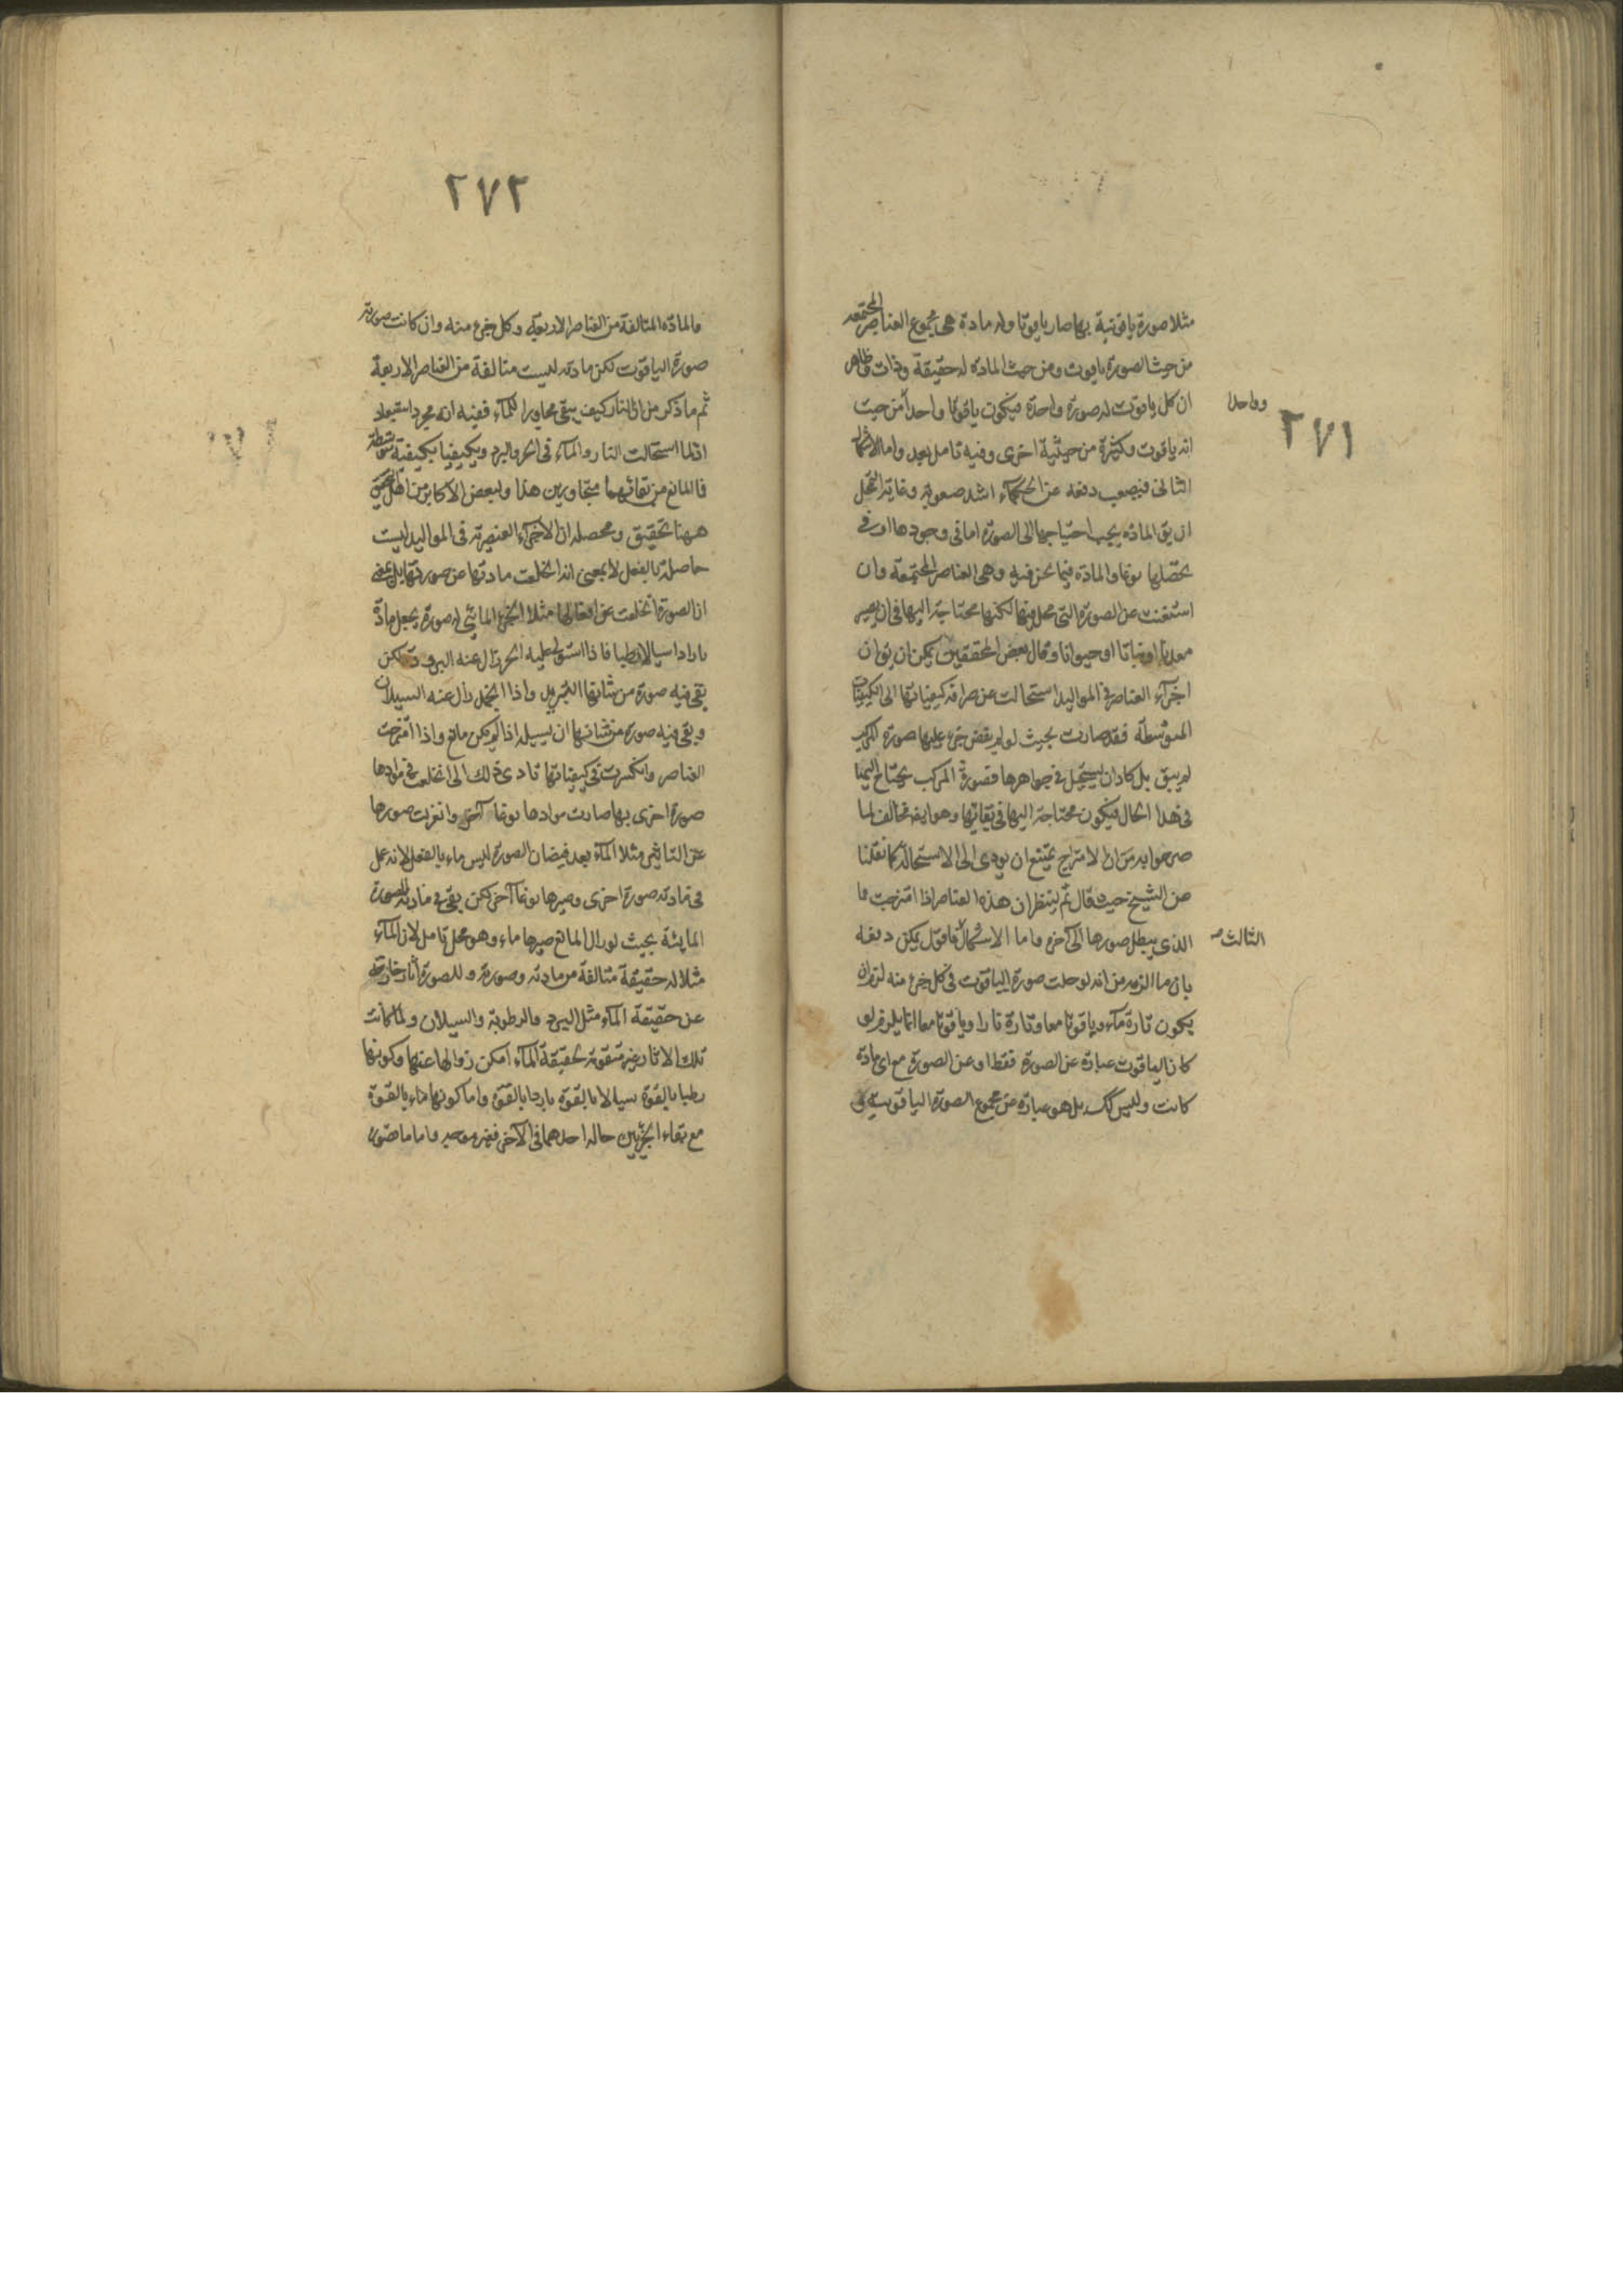 ٢٧١
مثلا صورة ياقوتية بها صار ياقوتا وله مادة هى مجموع العناصر المجتمعه
من حيث الصورة ياقوت ومن حيث المادة له حقيقة وذات وظاهر
ان كل ياقوت له صورة واحدة فيكون ياقوتا واحدا من حيث
وواحدا
انه ياقوت وكثيرة من حيثية اخرى وفيه تامل بعد واما الاشكال
الثانى فيصعب دفعه عن الحكماء اشد صعوبة وغاية التمحل
ان يق المادة يجب احتياجها الى الصورة اما فى وجودها او فى
تحصلها نوعا والمادة فيما نحن فيه وهى العناصر المجتمعة وان
استغنت عن الصورة التى محل فيها لكنها محتاجة اليها فى ان يصير
معدنا او نباتا او حيوانا وقال بعض المحققين يمكن ان يق ان
اجزآء العناصر فى المواليد استحالت عن صرافة كيفياتها الى الكيفيات
المتوسطة فقد صارت بحيث لو لم يفض جزء عليها صورة المركب
لم يبق بل كاد ان يستحيل فى جواهرها فصورة المركب يحتاج اليها
فى هذا الحال فيكون محتاجة اليها فى بقائها وهو ايضا مخالف لما
صرحوا به من ان الامتزاج يمتنع ان يودى الى الاستحالة كما نقلنا
من الشيخ حيث قال ثم لينظر ان هذه العناصر اذا امتزجت فما
الذى يبطل صورها الى آخره واما الاشكال فاقول يمكن دفعه
الثالث صـ
بان ما الزمه من انه لو حلت صورة الياقوت فى كل جزء منه لزم ان
يكون تارة مآء وياقوتا معا وتارة نارا وياقوتا معا انما يلزم لو
كان الياقوت عبارة عن الصورة فقط او عن الصورة مع اى مادة
كانت وليس كك بل هو عبارة عن مجموع الصورة الياقوتية
٢٧٢
والمادة المتالفة من العناصر الاربعة وكل جزء منه وان كانت صورته
صورة الياقوت لكن مادته ليست متالفة من العناصر الاربعة
ثم ما ذكر من ان النار كيف يبقى مجاورا للمآء ففيه انه مجرد استبعاد
اذ لما استحالت النار والمآء فى الحر والبرد وتكيفيا بكيفية متوسطة
فما المانع من بقائهما متجاورين هذا ولبعض الاكابر من اهل
ههنا تحقيق ومحصله ان الاجزآء العنصرية فى المواليد ليست
حاصلة بالفعل لا بمعنى انه انخلعت مادتها عن صورتها بل بمعنى
ان الصورة انخلعت عن افعالها مثلا الجزء المائى له صورة يجعل مادة
باردا سيالا رطبا فاذا استولى عليه الحر زال عنه البرد ولكن
بقى فيه صورة من شانها التبريد واذا انجمد زال عنه السيلان
وبقى فيه صورة من شانها ان يسيله اذا لم يكن مانع واذا امتزجت
العناصر وانكسرت فى كيفياتها تادى ذلك الى ان خلعت فى موادها
صورة اخرى بها صارت موادها نوعا آخر وانعزلت صورها
عن التاثير مثلا المآء بعد فيضان الصورة ليس ماء بالفعل لانه حل
فى مادته صورة اخرى وصيرها نوعا آخر لكن بقى فى مادته الصورة
المايئة بحيث لو زال المانع صيرها ماء وهو محل تامل لان المآء
مثلا له حقيقة متالفة من مادته وصورة وللصورة آثار خارجة
عن حقيقة المآء مثل البرد والرطوبة والسيلان ولما كانت
تلك الاثار غير مقومة لحقيقة المآء امكن زوالها عنها وكونها
رطبا بالقوة سيالا بالقوة باردا بالقوة واما كونها ماء بالقوة
مع بقاء الجزئين حاله احدهما فى الآخر فغير موجه واما ما صورا